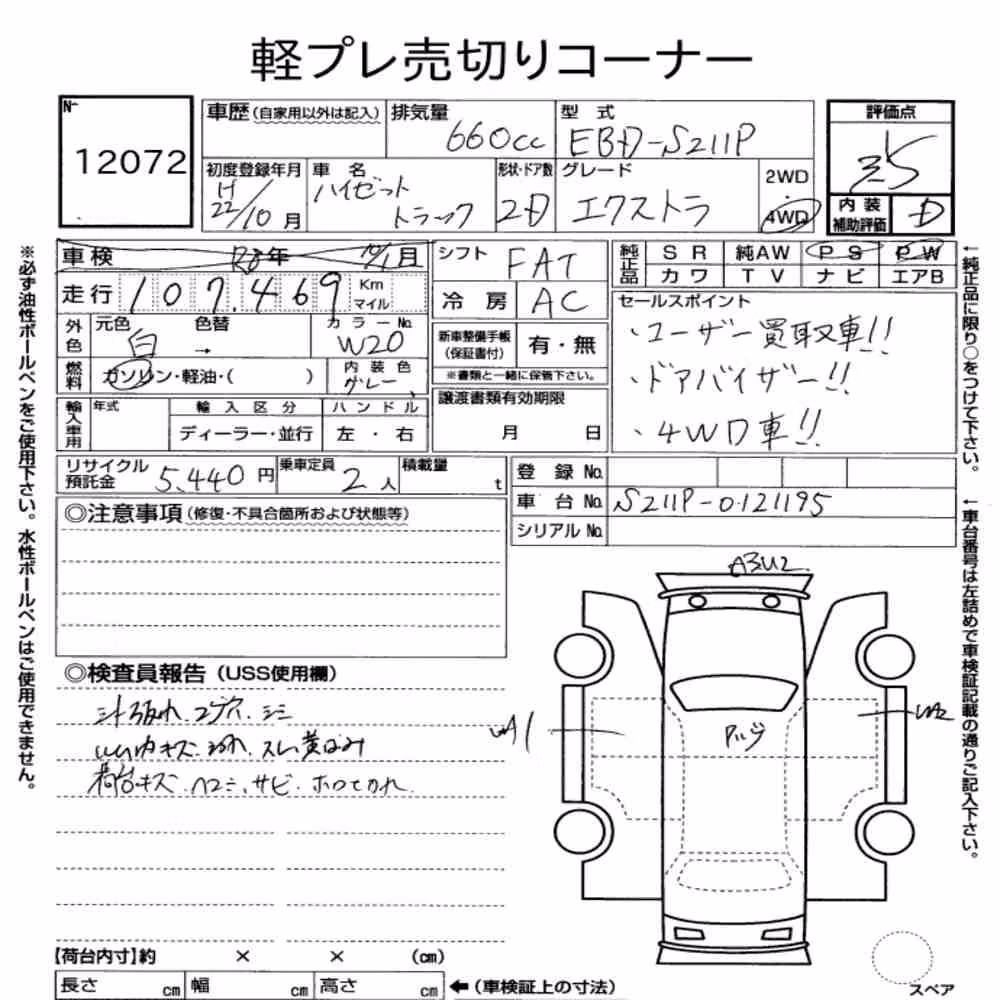 軽プレ売切りコーナー
No
12072
車歴(自家用以外は記入)
排気量
660cc
型式
EBD-S211P
評価点
3.5
初度登録年月
H22/10月
車名
ハイゼット
トラック
形状・ドア数
2D
グレード
エクストラ
2WD
4WD
内装
補助評価
D
車検
年
月
シフト
FAT
純正品
SR
純AW
PS
PW
カワ
TV
ナビ
エアB
走行
107,469
Km
マイル
冷房
AC
セールスポイント
・ユーザー買取車!!
・ドアバイザー!!
・4WD車!!
外色
元色
白
色替
→
カラーNo.
W20
新車整備手帳
(保証書付)
有・無
※書類と一緒に保管下さい。
燃料
ガソリン・軽油・( )
内装色
グレー
譲渡書類有効期限
月 日
輸入車用
年式
輸入区分
ディーラー・並行
ハンドル
左・右
リサイクル
預託金
5,440円
乗車定員
2人
積載量
t
登録No.
車台No.
S211P-0121195
シリアルNo.
◎注意事項(修復・不具合箇所および状態等)
◎検査員報告(USS使用欄)
シート破れ.コゲ穴.シミ
キズ
荷台キズ.ヘコミ.サビ.
A3U2
W1
W2
【荷台内寸】約 × × (cm)
長さ cm 幅 cm 高さ cm
←(車検証上の寸法)
スペア
※必ず油性ボールペンをご使用下さい。水性ボールペンはご使用できません。
←純正品に限り○をつけて下さい。
←車台番号は左詰めで車検証記載の通りご記入下さい。